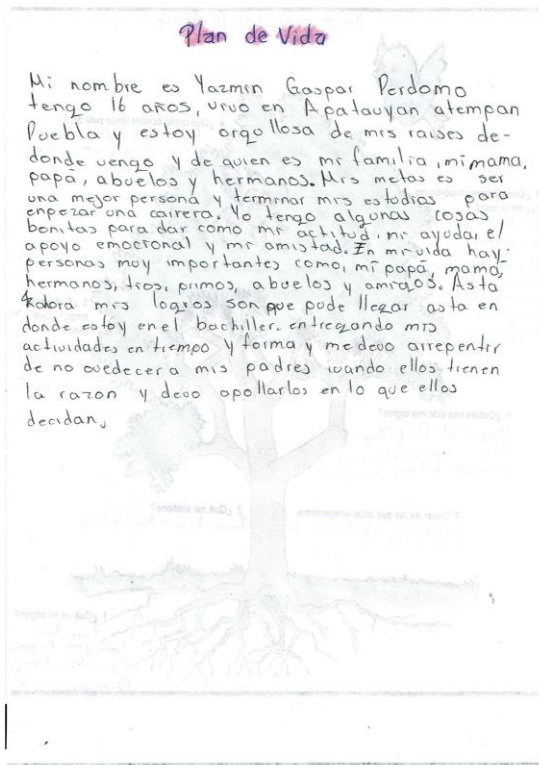 Plan de Vida
Mi nombre es Yazmin Gaspar Perdomo
tengo 16 años, vivo en Apatauyan atempan
Puebla y estoy orgollosa de mis raises de-
donde vengo y de quien es mi familia, mi mama,
papá, abuelos y hermanos. Mis metas es ser
una mejor persona y terminar mis estudios para
enpezar una carrera. Yo tengo algunas cosas
bonitas para dar como mi actitud, mi ayuda, el
apoyo emocional y mi amistad. En mi vida hay
personas muy importantes como, mi papá, mamá,
hermanos, tios, primos, abuelos y amigos. Asta
ahora mis logros son que pude llegar asta en
donde estoy en el bachiller. entregando mis
actividades en tiempo y forma y me devo arrepentir
de no ovedecer a mis padres cuando ellos tienen
la razon y devo apollarlos en lo que ellos
decidan,